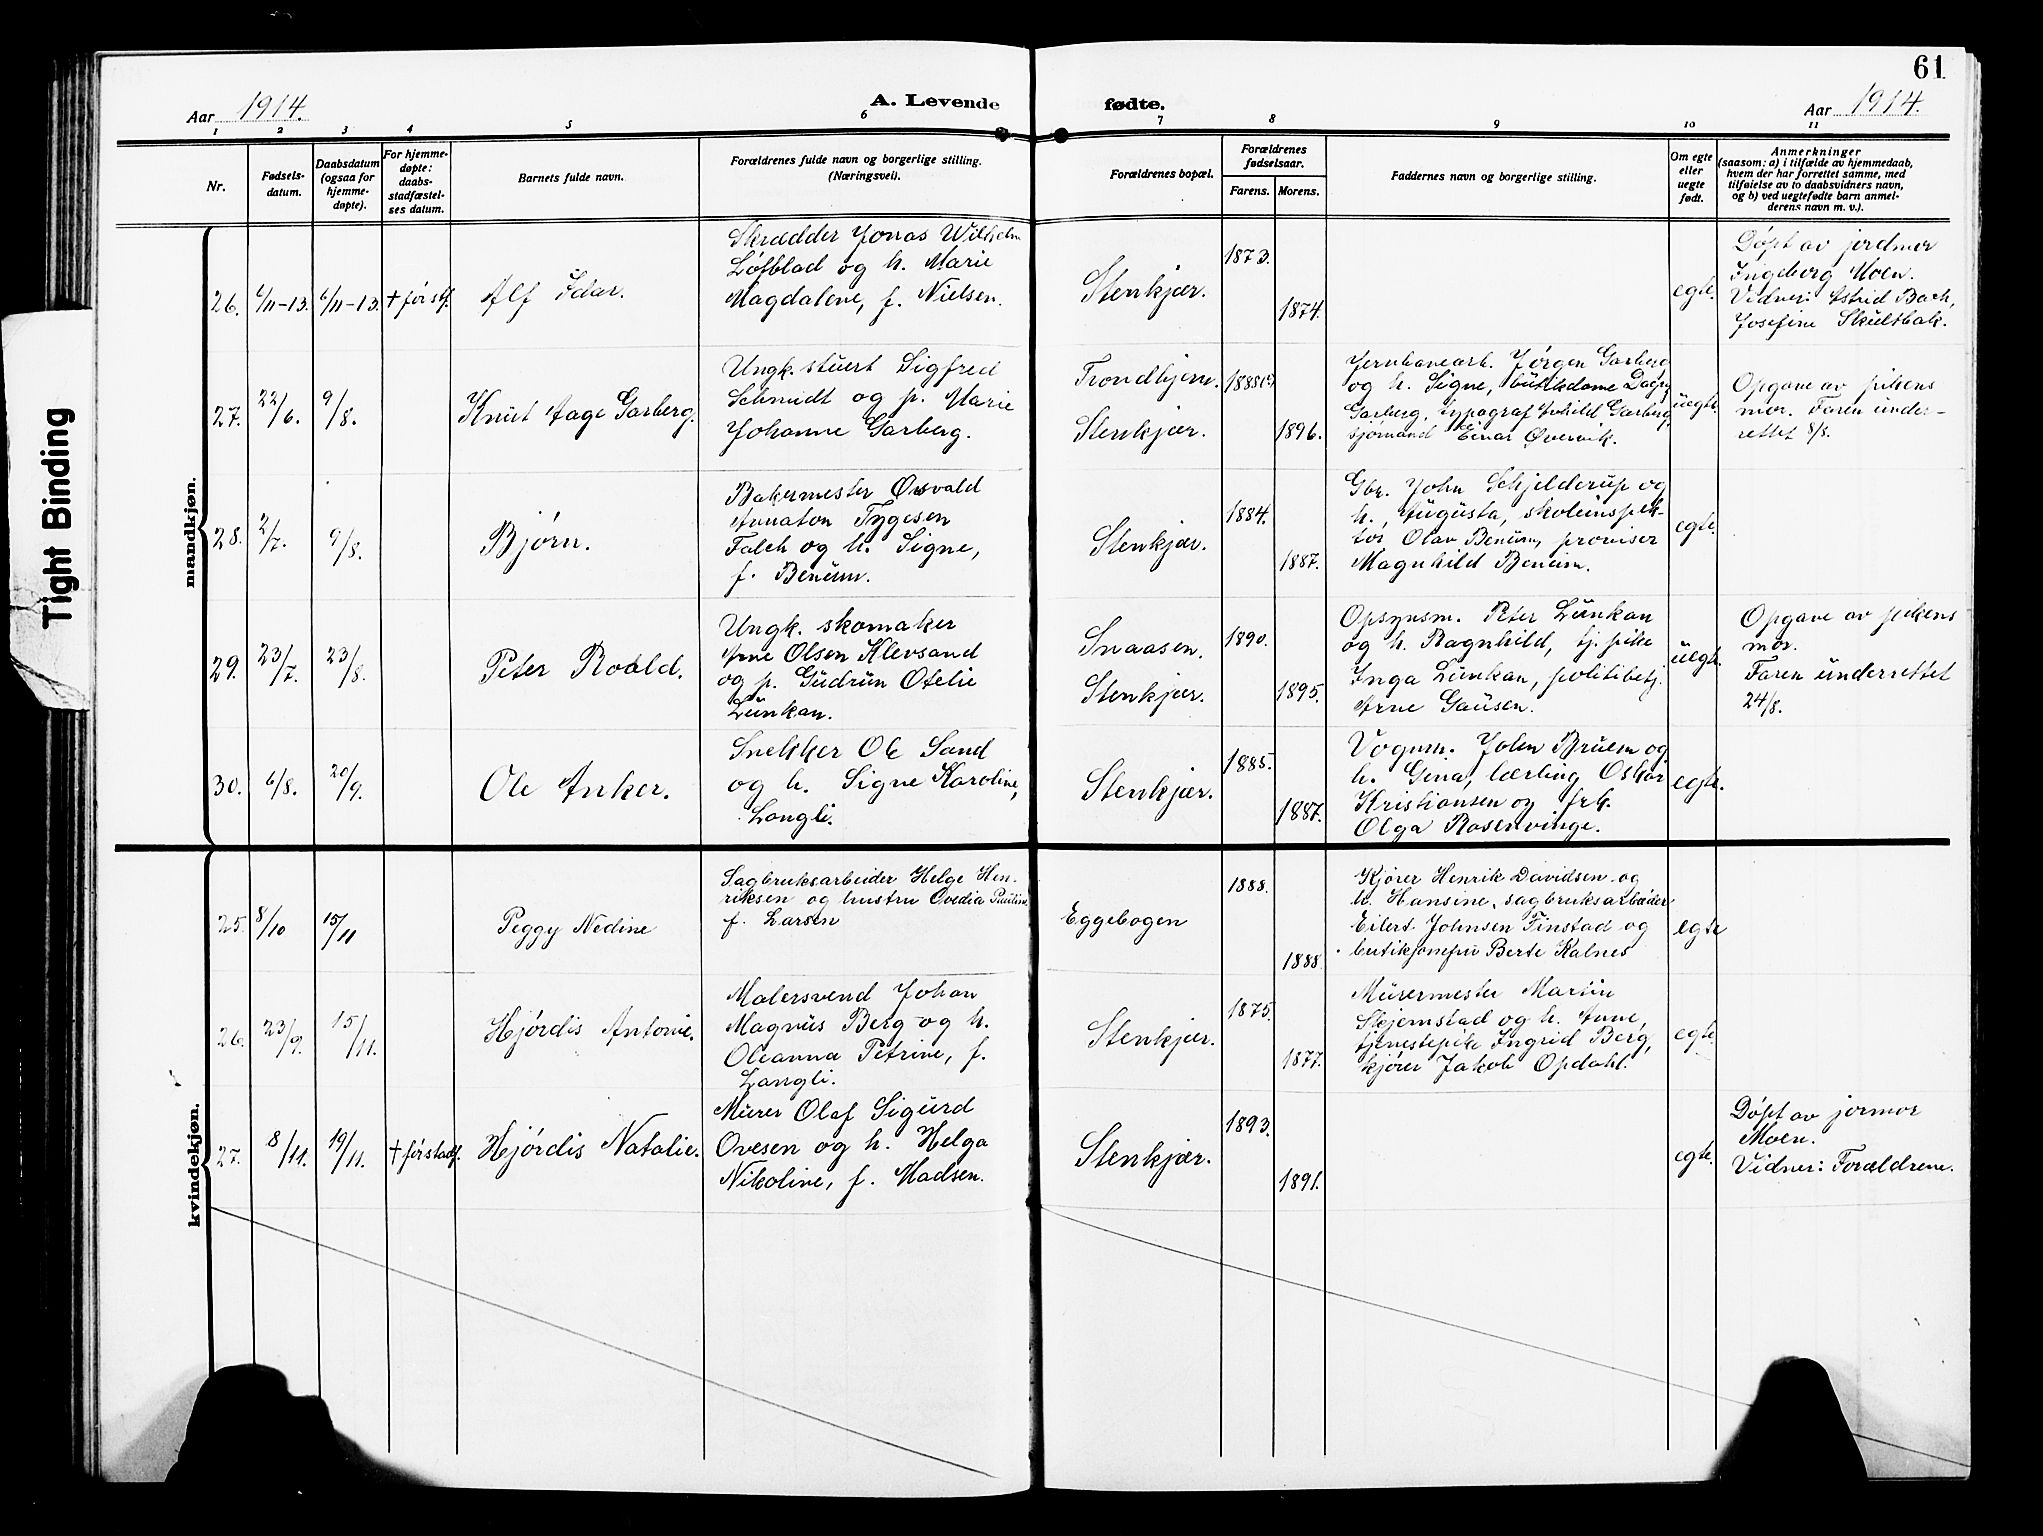 61
Aar 1914.
A. Levende fødte.
Aar 1914.
1 2 3 4 5 6 7 8 9 10 11
Nr.
Fødsels-
datum.
Daabsdatum
(ogsaa for
hjemme-
døpte).
For hjemme-
døpte:
daabs-
stadfæstel-
ses datum.
Barnets fulde navn.
Forældrenes fulde navn og borgerlige stilling.
(Næringsvei).
Forældrenes bopæl.
Forældrenes
fødselsaar.
Farens. Morens.
Faddernes navn og borgerlige stilling.
Om egte
eller
uegte
født.
Anmerkninger
(saasom: a) i tilfælde av hjemmedaab,
hvem der har forrettet samme, med
tilføielse av to daabsvidners navn,
og b) ved uegtefødte barn anmel-
derens navn m. v.).
Tight Binding
mandkjøn.
26. 6/11-13. 6/11-13. † før stf. Alf Idar.
Skrædder Jonas Wilhelm
Löfblad og h. Marie
Magdalene, f. Nielsen.
Stenkjær.
1873.
1874.
egte.
Døpt av jordmor
Ingeborg Moen.
Vidner: Astrid Bach,
Josefine Skultbak.
27. 22/6. 9/8. Knut Aage Garberg.
Ungk. stuert Sigfred
Schmidt og p. Marie
Johanne Garberg.
Trondhjem.
Stenkjær.
1888(?)
1896.
Jernbanearb. Jørgen Garberg
og h. Signe, butikdame Dagny
Garberg, typograf Arhild Garberg,
sjømand Einar Øvervik.
uegte.
Opgave av pikens
mor. Faren under-
rettet 8/8.
28. 2/7. 9/8. Bjørn.
Bakermester Osvald
Annaton Tygesen
Falch og h. Signe,
f. Benum.
Stenkjær.
1884.
1887.
Gbr. John Schjelderup og
h., Augusta, skoleinspek-
tør Olav Benum, proviser
Magnhild Benum.
egte.
29. 23/7. 23/8. Peter Roald.
Ungk. skomaker
Arne Olsen Klevsand
og p. Gudrun Otelie
Lunkan.
Snaasen.
Stenkjær.
1890.
1895.
Opsynsm. Peter Lunkan
og h. Ragnhild, tj. pike
Inga Lunkan, politibetj.
Arne Gausen.
uegte.
Opgave av pikens
mor.
Faren underrettet
24/8.
30. 6/8. 20/9. Ole Anker.
Snekker Ole Sand
og h. Signe Karoline,
Langli.
Stenkjær.
1885.
1887.
Vognm. John Bruem og
h. Gina, lærling Oskar
Kristiansen og frk.
Olga Rosenvinge.
egte.
kvindekjøn.
25. 8/10 15/11 Peggy Nedine
Sagbruksarbeider Helge Hen-
riksen og hustru Ovedia Pauline
f. Larsen
Eggebogen
1888.
1888.
Kjører Henrik Davidsen og
h. Hansine, sagbruksarbeider
Eilert Johnsen Finstad og
butikjomfru Berte Kalnes
egte
26. 23/9. 15/11. Hjördis Antonie.
Malersvend Johan
Magnus Berg og h.
Oleanna Petrine, f.
Langli.
Stenkjær.
1875.
1877.
Murermester Martin
Skjemstad og h. Anne,
tjenestepike Ingrid Berg,
kjører Jakob Opdahl.
egte.
27. 8/11. 19/11. † før stadf. Hjördis Natalie.
Murer Olaf Sigurd
Ovesen og h. Helga
Nikoline, f. Madsen.
Stenkjær.
1893.
1891.
egte.
Døpt av jormor
Moen.
Vidner: Forældrene.